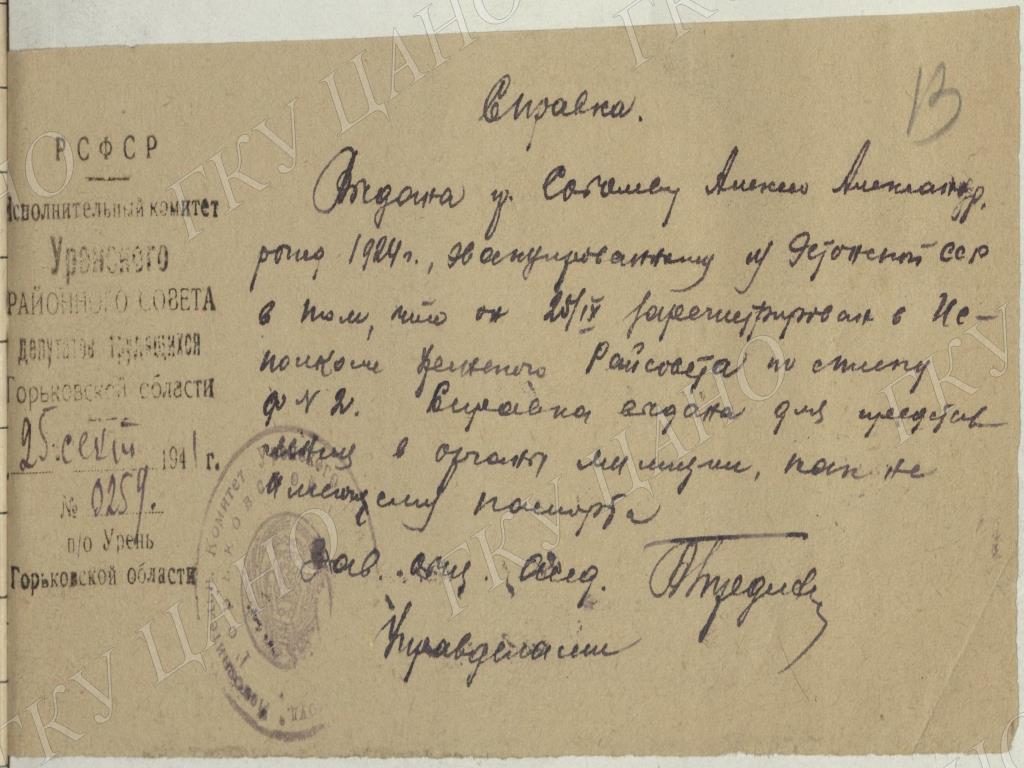 13
Справка.
РСФСР
Исполнительный комитет
Уренского
РАЙОННОГО СОВЕТА
депутатов трудящихся
Горьковской области
25. 1941 г.
№ 0259.
п/о Урень
Горьковской области
Выдана гр. Алексею Александр.
рожд 1924 г., эвакуированному из Эстонской ССР
в том, что он 25/IX зарегистрирован в Ис-
полкоме Уренского Райсовета по списку
ф N 2. Справка выдана для представ-
ления в органы милиции, как не
имеющему паспорта
Зав. общ. отд.
Управделами
ГКУ ЦАНО